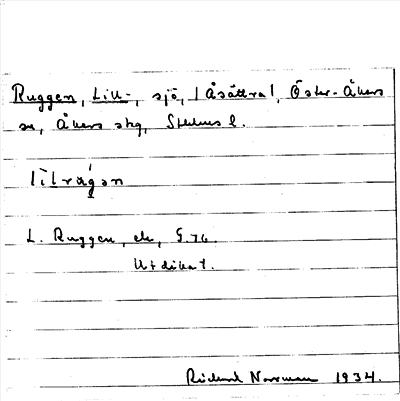 Ruggen, Lill-, sjö, (Åsättra), Öster-Åkers
sn, Åkers skg, Sthlms l.
lı̄lrùgən
L. Ruggen, ek, G.76.
Utdikat.
Rickard Norrman 1934.